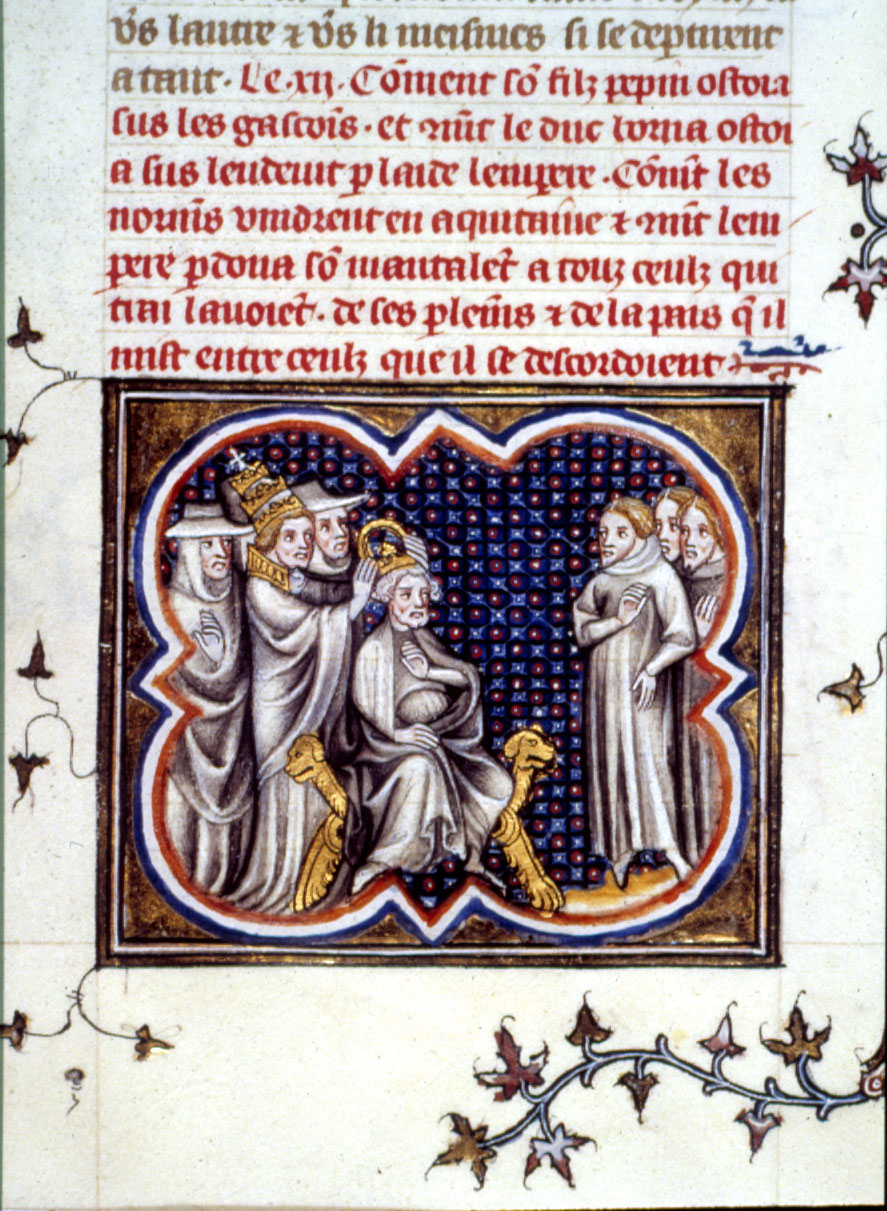 v̄s lautre ⁊ v̄s li meismes si se departirent
a tant. Le .xij. Cōment sō filz pepin ostoia
sus les gascoīs. et 9mēt le duc lorna ostoi
a sus leudeuit p laide lempere. Cōmēt les
normās vindrent en aquitaine ⁊ 9mēt lem
pere pdona sō mautalēt a touz ceulz qui
trai lauoiēt. de ses plemēs ⁊ de la pais q̄ il
mist entre ceulz que il se descordoient